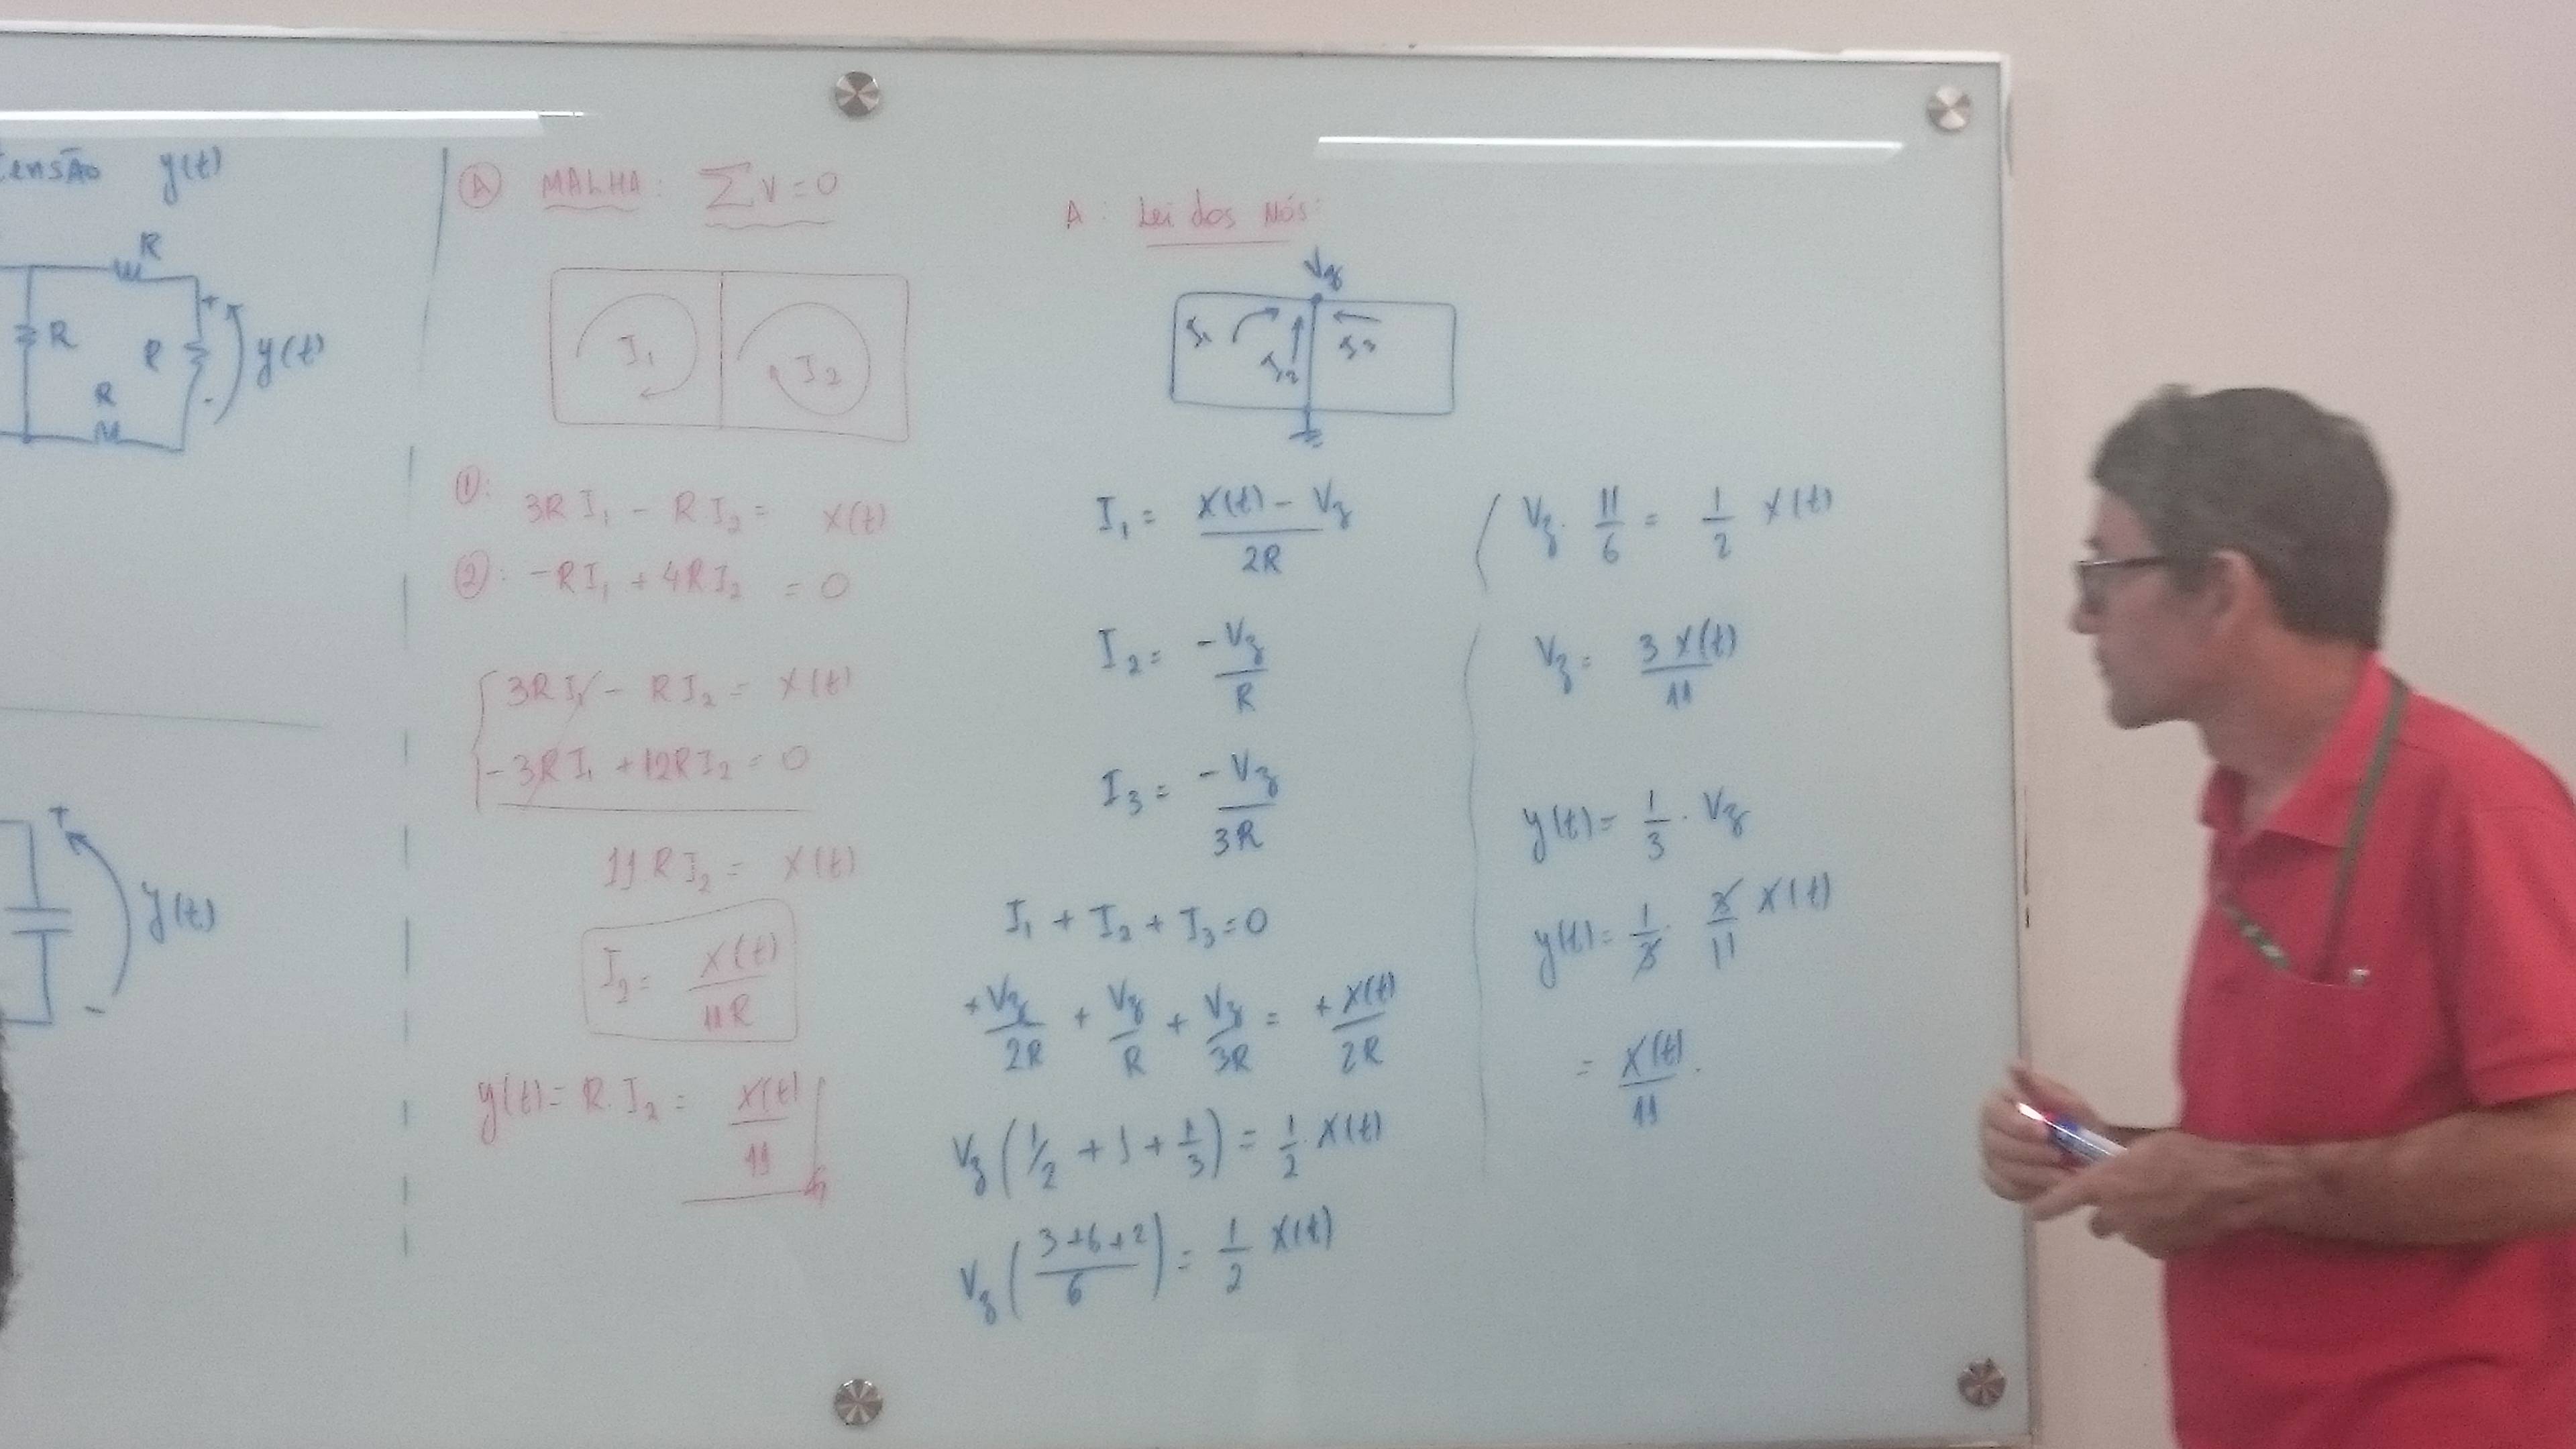 tensão y(t)
R
R
R
R
+
-
y(t)
+
-
y(t)
Ⓐ MALHA: ∑V=0
I₁
I₂
①: 3RI₁ - RI₂ = x(t)
②: -RI₁ + 4RI₂ = 0
3RI₁ - RI₂ = x(t)
-3RI₁ + 12RI₂ = 0
11RI₂ = x(t)
I₂ = x(t)/11R
y(t) = R.I₂ = x(t)/11
A: Lei dos Nós:
V₃
I₁
I₂
I₃
I₁ = x(t) - V₃/2R
I₂ = -V₃/R
I₃ = -V₃/3R
I₁ + I₂ + I₃ = 0
+V₃/2R + V₃/R + V₃/3R = +x(t)/2R
V₃(1/2 + 1 + 1/3) = 1/2 . x(t)
V₃(3+6+2/6) = 1/2 x(t)
V₃ . 11/6 = 1/2 x(t)
V₃ = 3x(t)/11
y(t) = 1/3 . V₃
y(t) = 1/3 . 3/11 x(t)
= x(t)/11 .